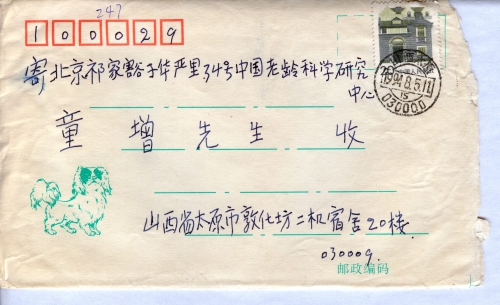 247
100029
寄北京祁家豁子华严里34号中国老龄科学研究
中心
童增先生 收
山西省太原市敦化坊二机宿舍20楼
030009.
邮政编码
1994.8.5.11
15
030000